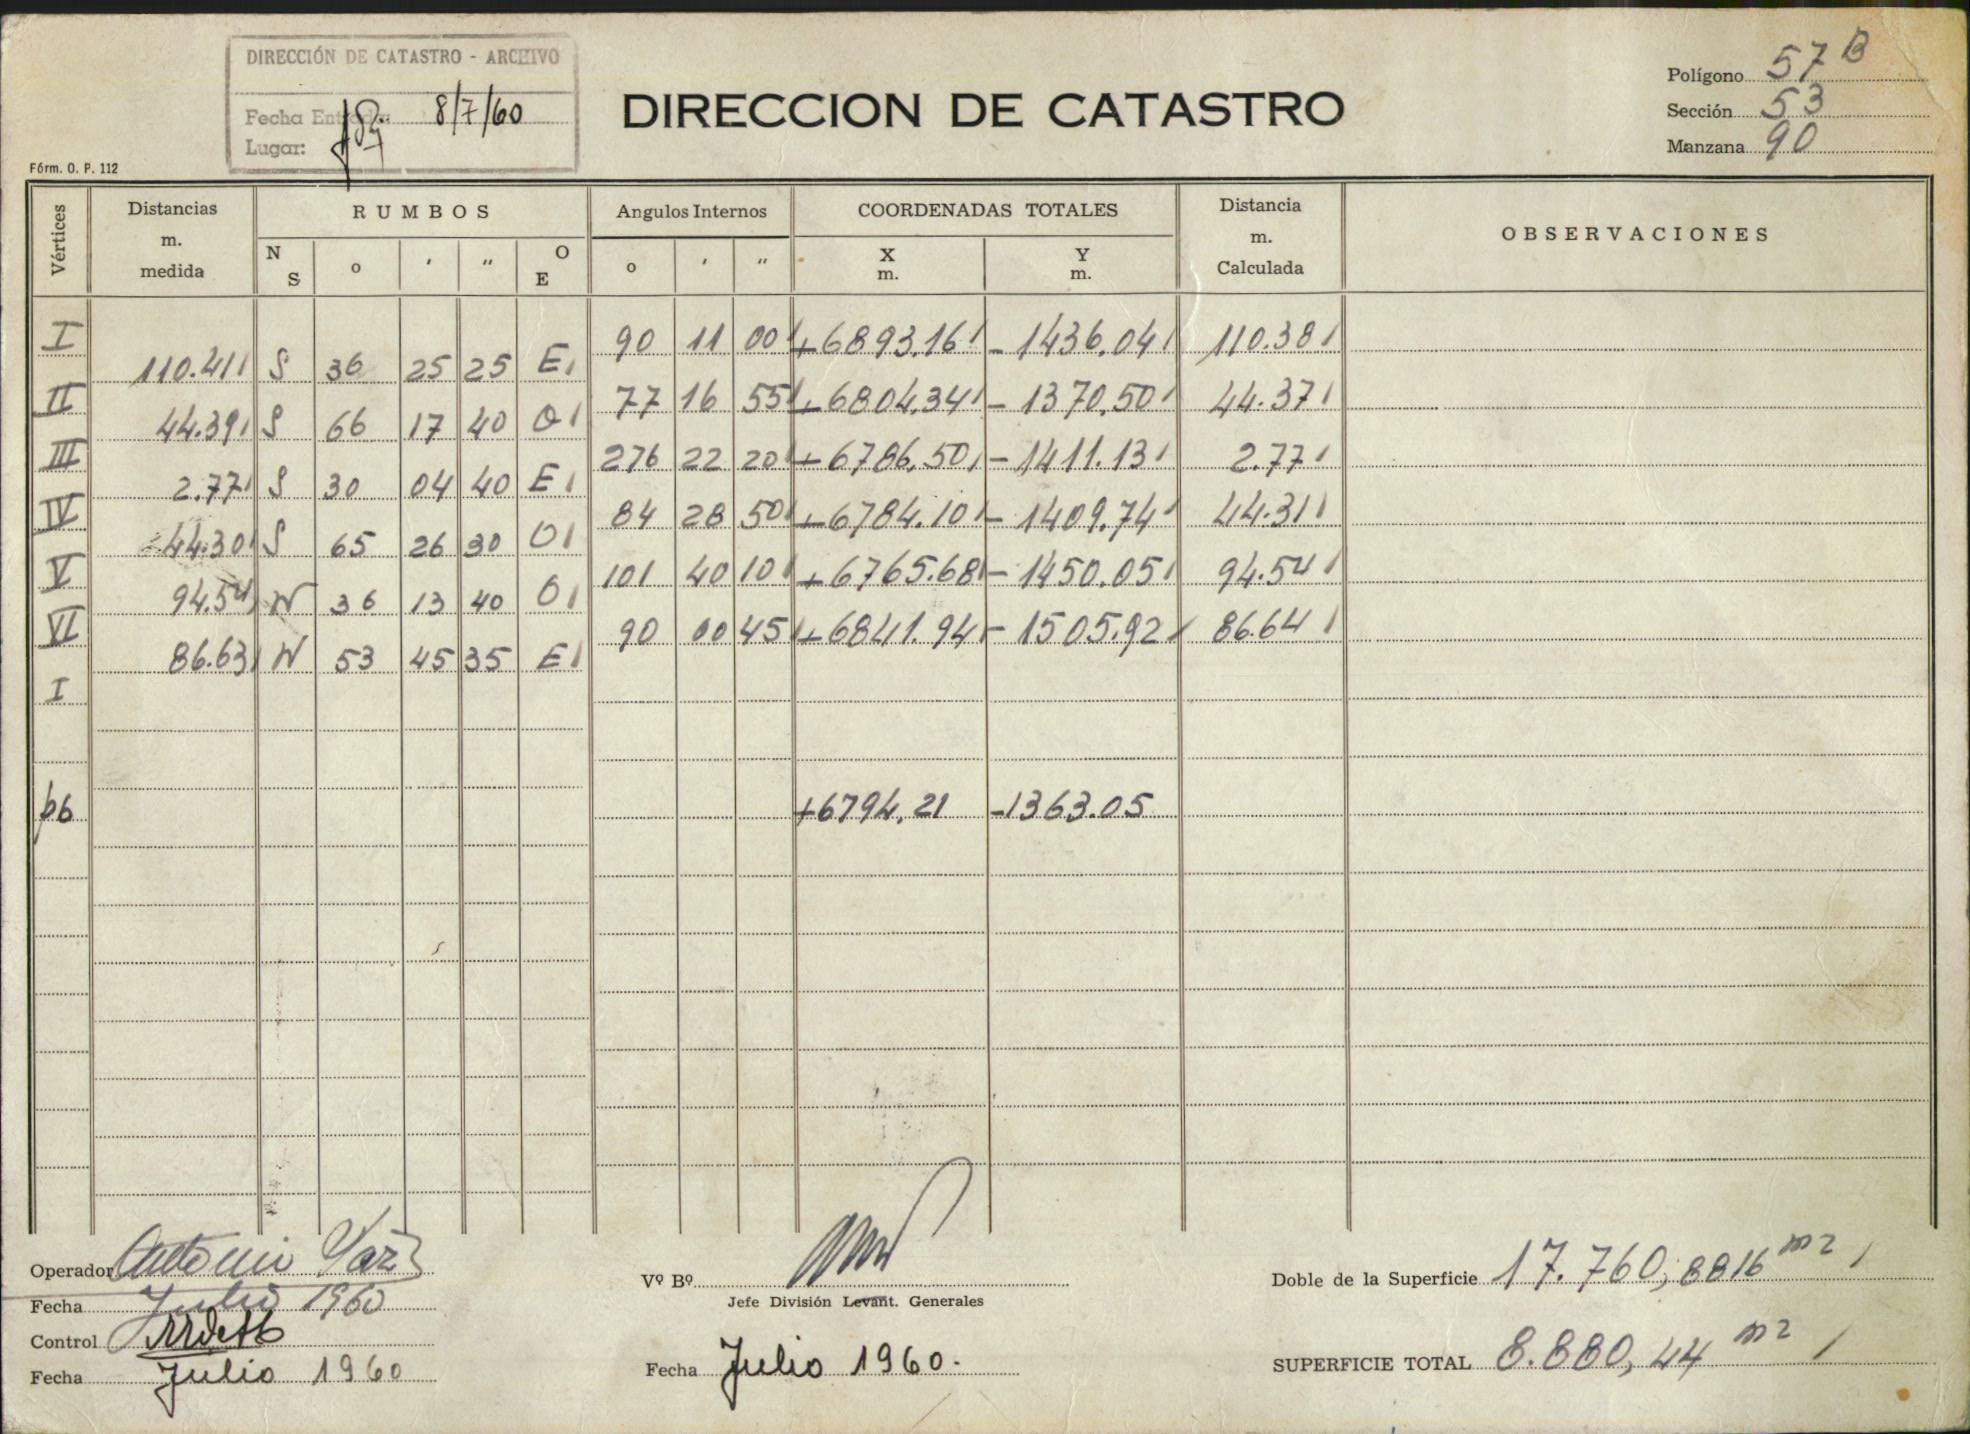 DIRECCIÓN DE CATASTRO - ARCHIVO
Fecha Entrada: 8/7/60
Lugar:
DIRECCION DE CATASTRO
Polígono 57 B
Sección 53
Manzana 90
Fórm. O. P. 112
Vértices Distancias m. medida RUMBOS Angulos Internos COORDENADAS TOTALES Distancia m. Calculada OBSERVACIONES
N S o ' " O E o ' " X m. Y m.
I 90 11 00 +6893.16 -1436.04 110.38
110.41 S 36 25 25 E
II 77 16 55 +6804.34 -1370.50 44.37
44.39 S 66 17 40 O
III 276 22 20 +6786.50 -1411.13 2.77
2.77 S 30 04 40 E
IV 84 28 50 +6784.10 -1409.74 44.31
44.30 S 65 26 30 O
V 101 40 10 +6765.68 -1450.05 94.54
94.54 N 36 13 40 O
VI 90 00 45 +6841.94 -1505.92 86.64
86.63 N 53 45 35 E
I
p6 +6794,21 -1363.05
Operador Antonio
Fecha Julio 1960
Control
Fecha Julio 1960
Vº Bº
Jefe División Levant. Generales
Fecha Julio 1960.
Doble de la Superficie 17.760,8816 m2
SUPERFICIE TOTAL 8.880,44 m2